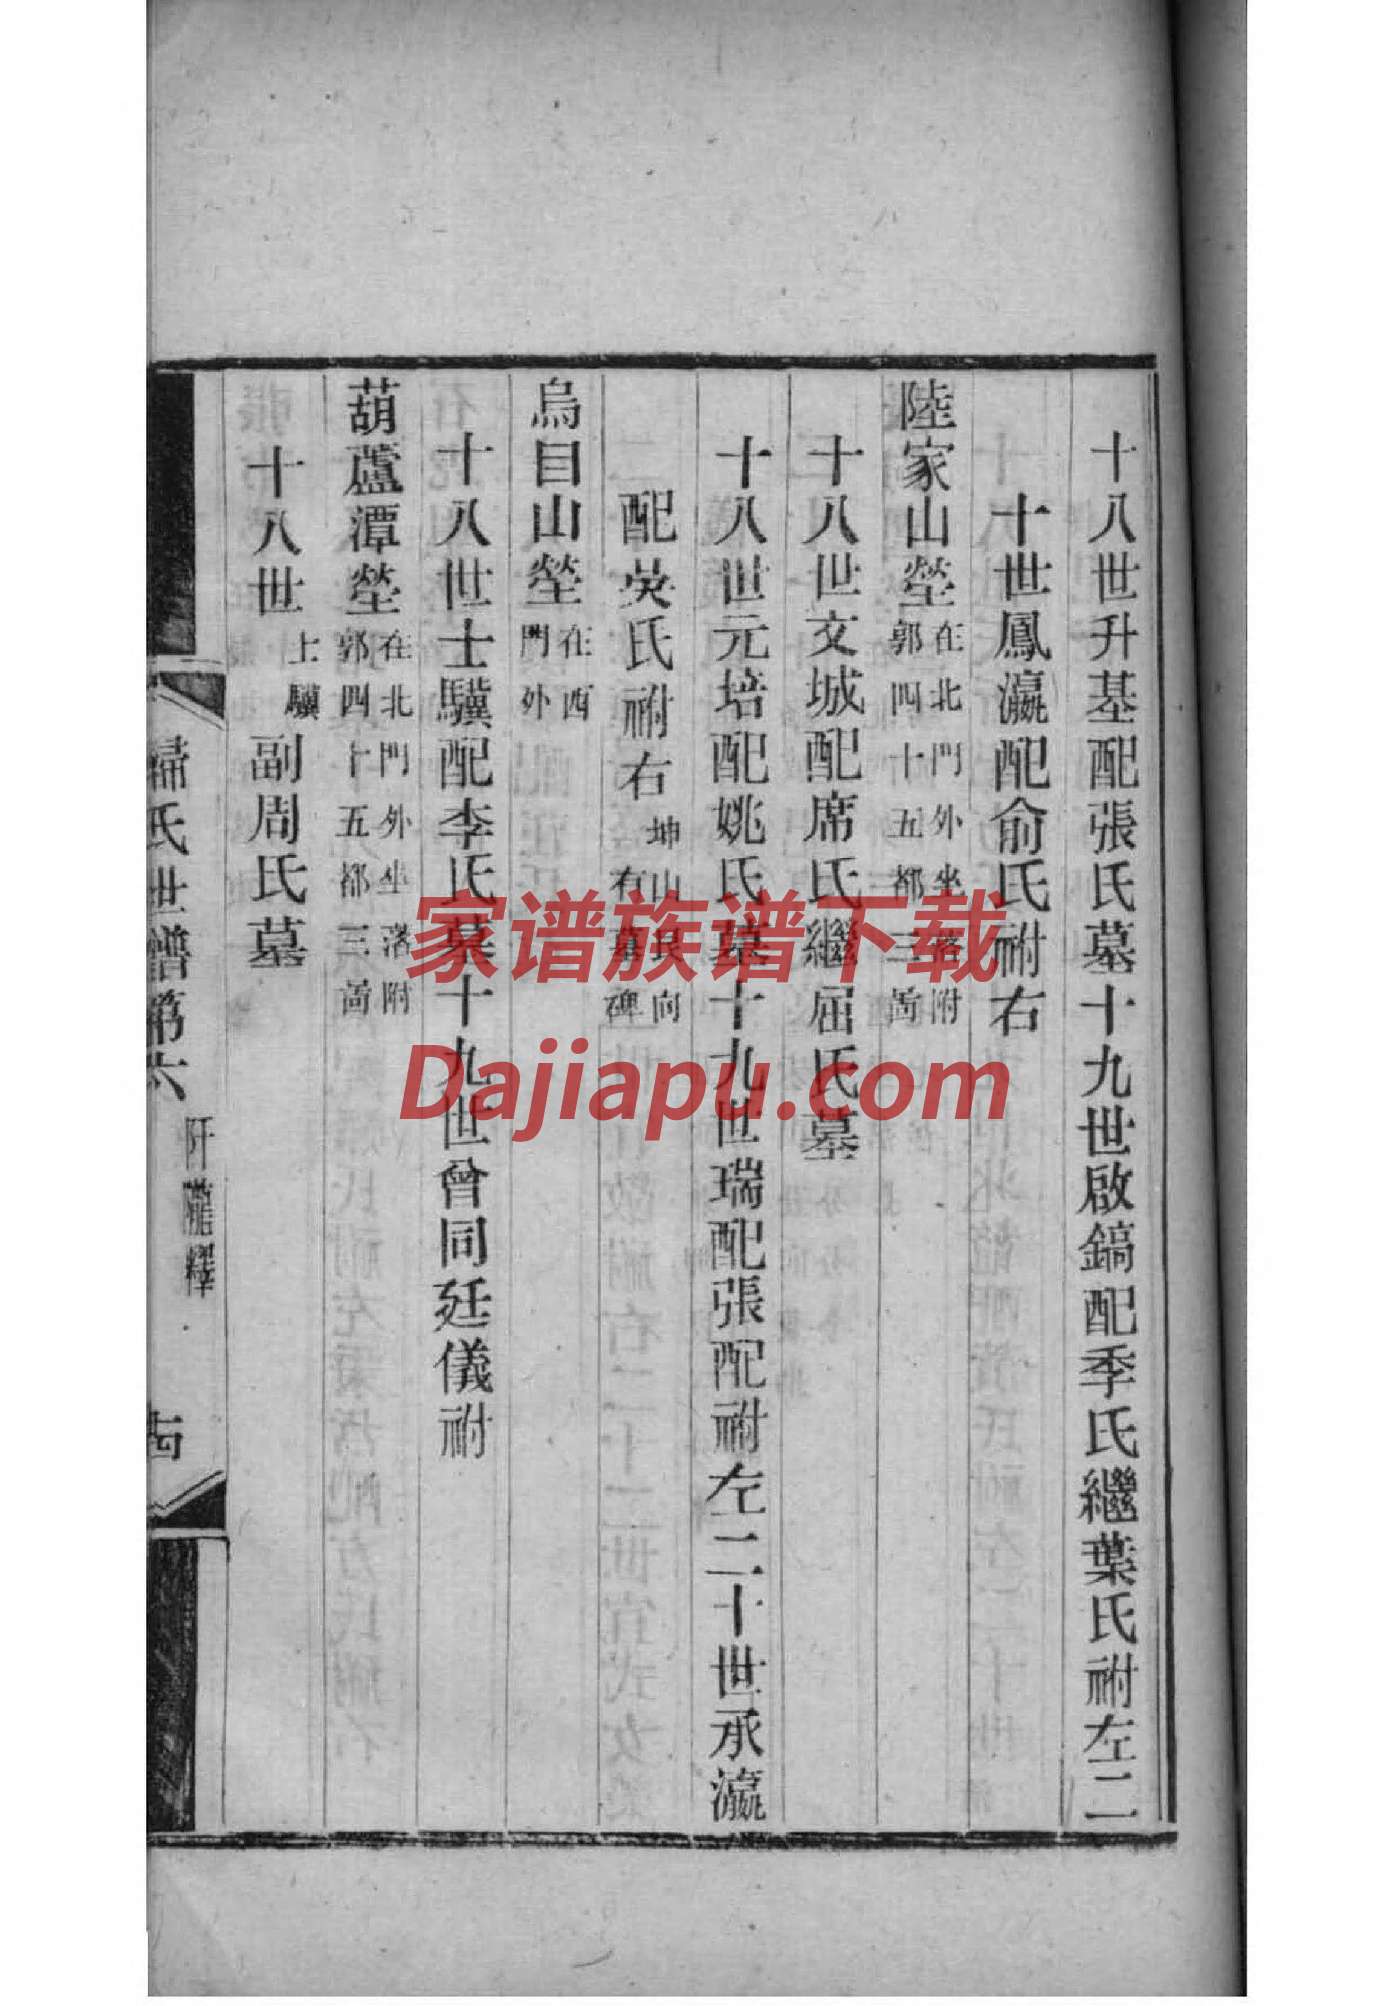 十八世升基配張氏墓十九世啟鎬配季氏繼葉氏祔左二
十世鳳瀛配俞氏祔右
陸家山塋在北門外坐落附
郭四十五都三啚
十八世文城配席氏繼屈氏墓
十八世元培配姚氏墓十九世瑞配張配祔左二十世承瀛
配吳氏祔右坤山艮向
有墓碑
烏目山塋在西
門外
十八世士驥配李氏墓十九世曾同廷儀祔
葫蘆潭塋在北門外坐落附
郭四十五都三啚
十八世士驥副周氏墓
歸氏世譜第六
阡隴釋
十四
家谱族谱下载
Dajiapu.com